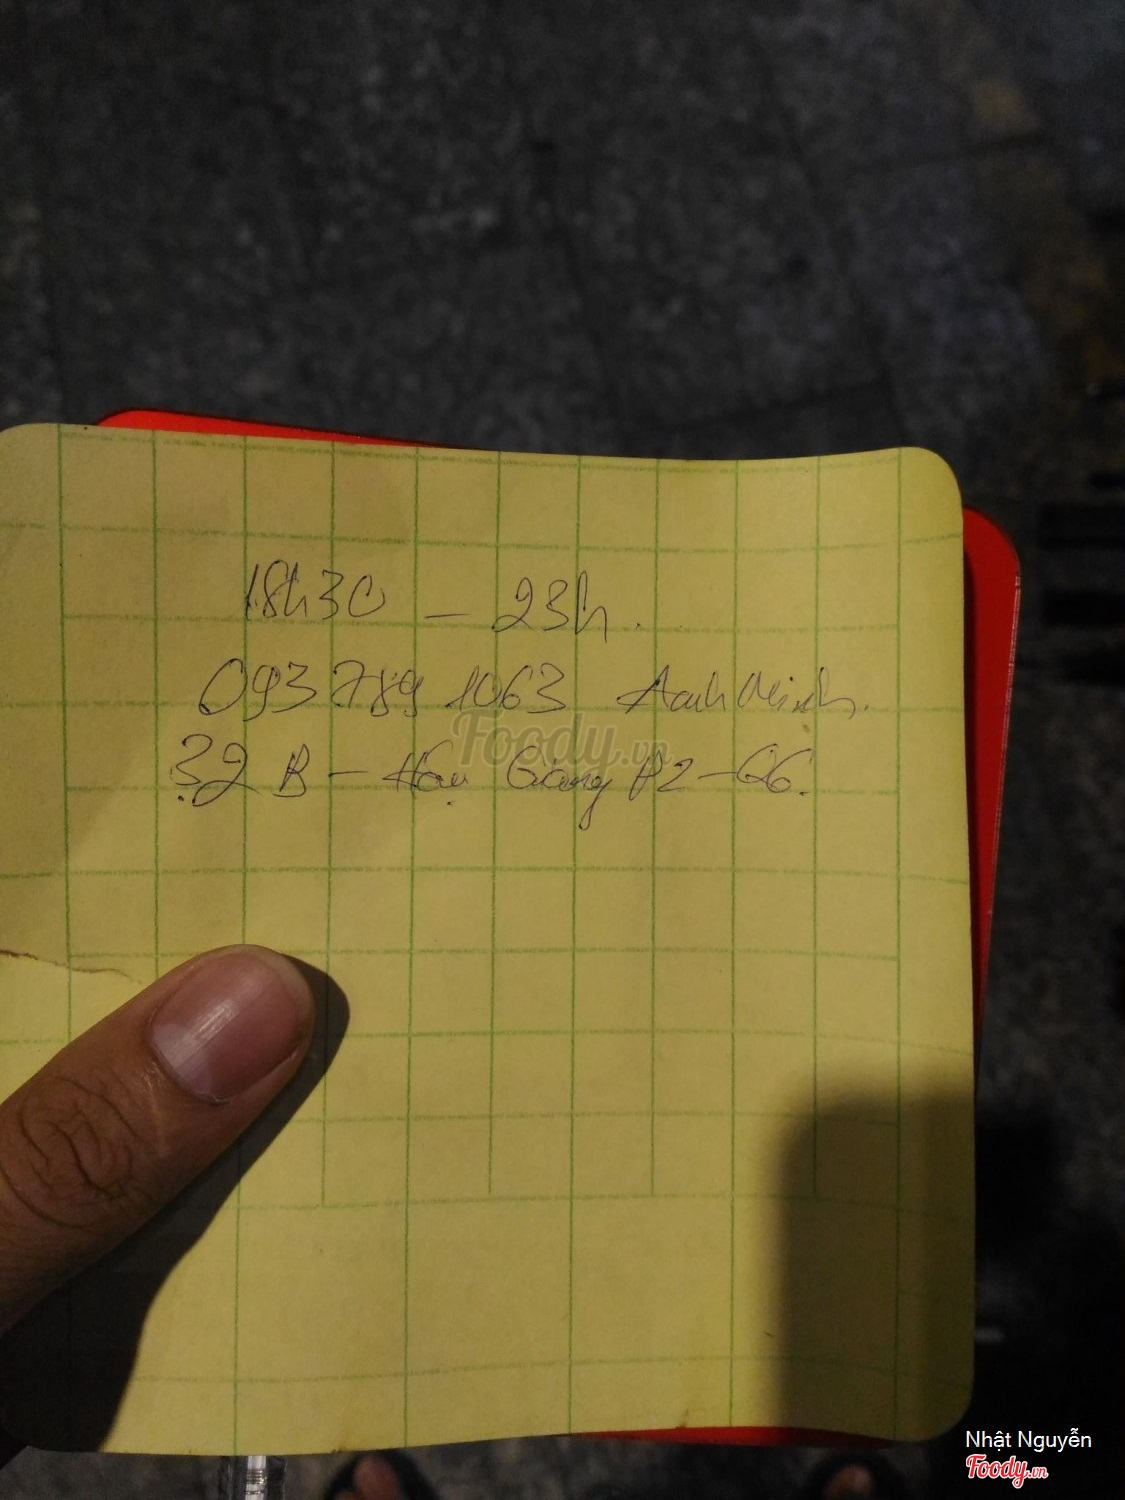 18h30 – 23h.
093 789 1063 Anh Minh.
Foody.vn
32 B – Hậu Giang P2 – Q6.
Nhật Nguyễn
Foody.vn